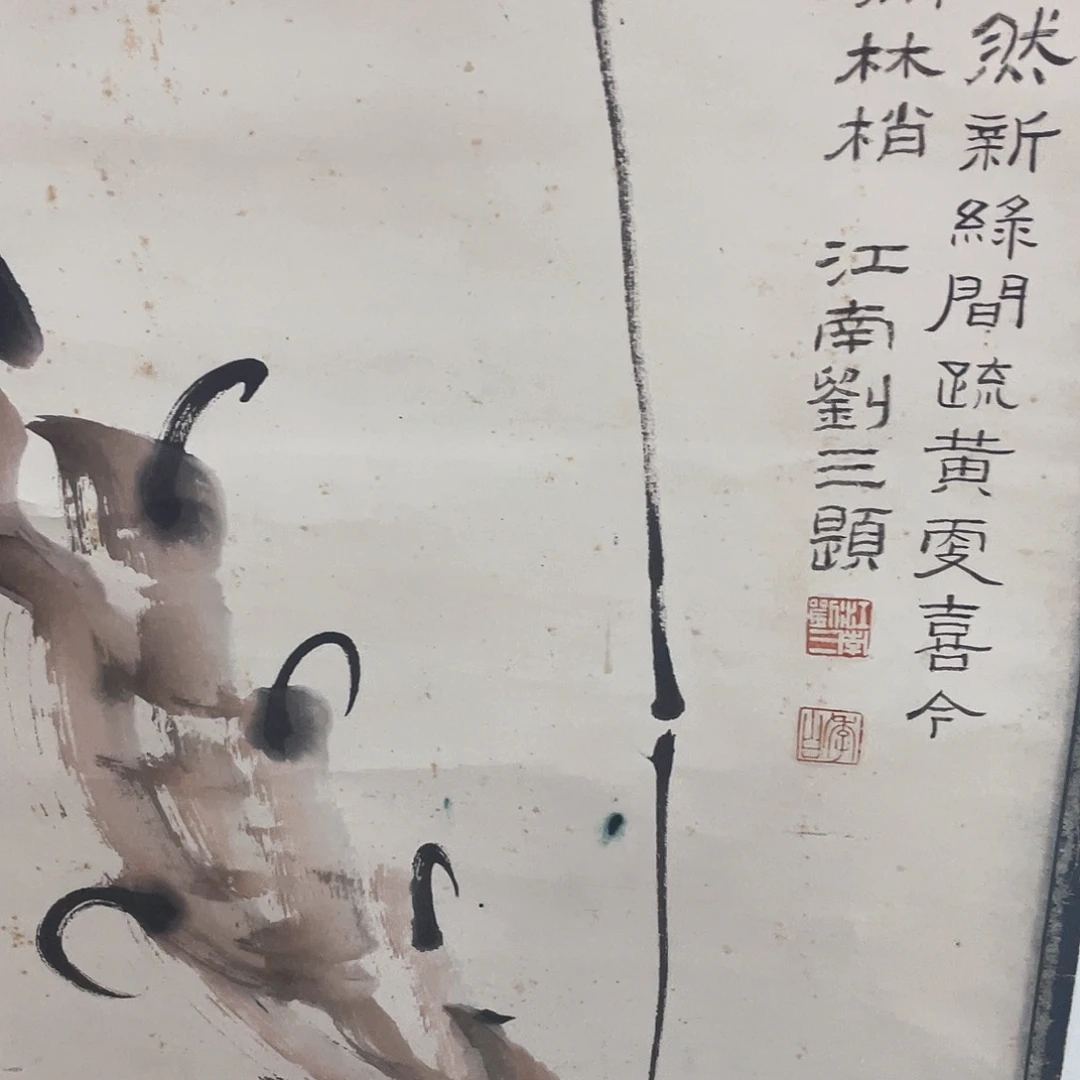 然新綠間疏黃更喜今
林梢 江南劉三題
江南劉三